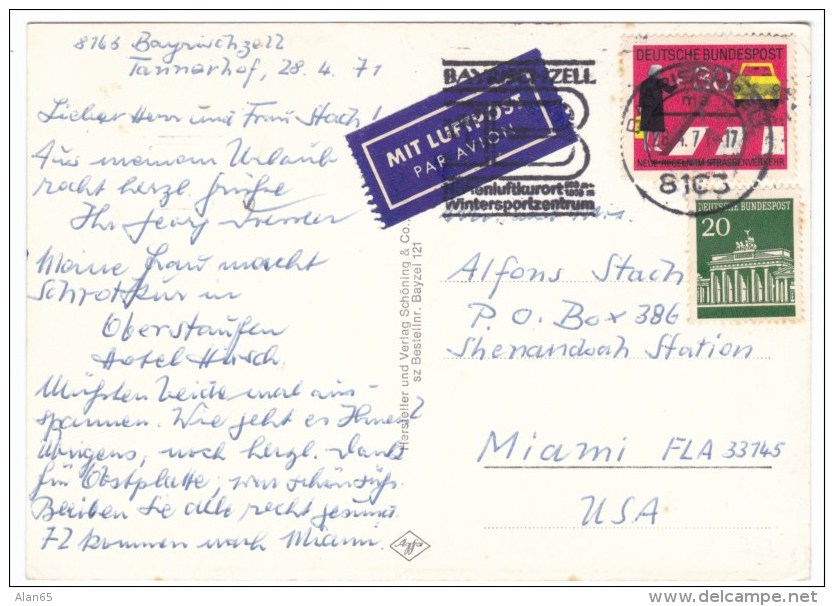 8163 Bayrischzell
Tannerhof, 28.4.71
Lieber Herr und Frau Stach!
Aus meinem Urlaub
recht herzl. Grüße
Ihr Georg
Meine Frau macht
Schrotkur in
Oberstaufen
Hotel Hirsch.
Mußten beide mal aus-
spannen. Wie geht es Ihnen?
Übrigens, noch herzl. Dank
für Obstplatte, war schön süß.
Bleiben Sie alle recht gesund
72 kommen nach Miami.
MIT LUFTPOST
PAR AVION
BAYRISCHZELL
Höhenluftkurort
Wintersportzentrum
DEUTSCHE BUNDESPOST
NEUE REGELN IM STRASSENVERKEHR
8163
DEUTSCHE BUNDESPOST
20
Hersteller und Verlag Schöning & Co.,
sz Bestellnr. Bayzel 121
Agfa
Alfons Stach
P.O. Box 386
Shenandoah Station
Miami FLA 33145
USA
Alan65
delcampe.net